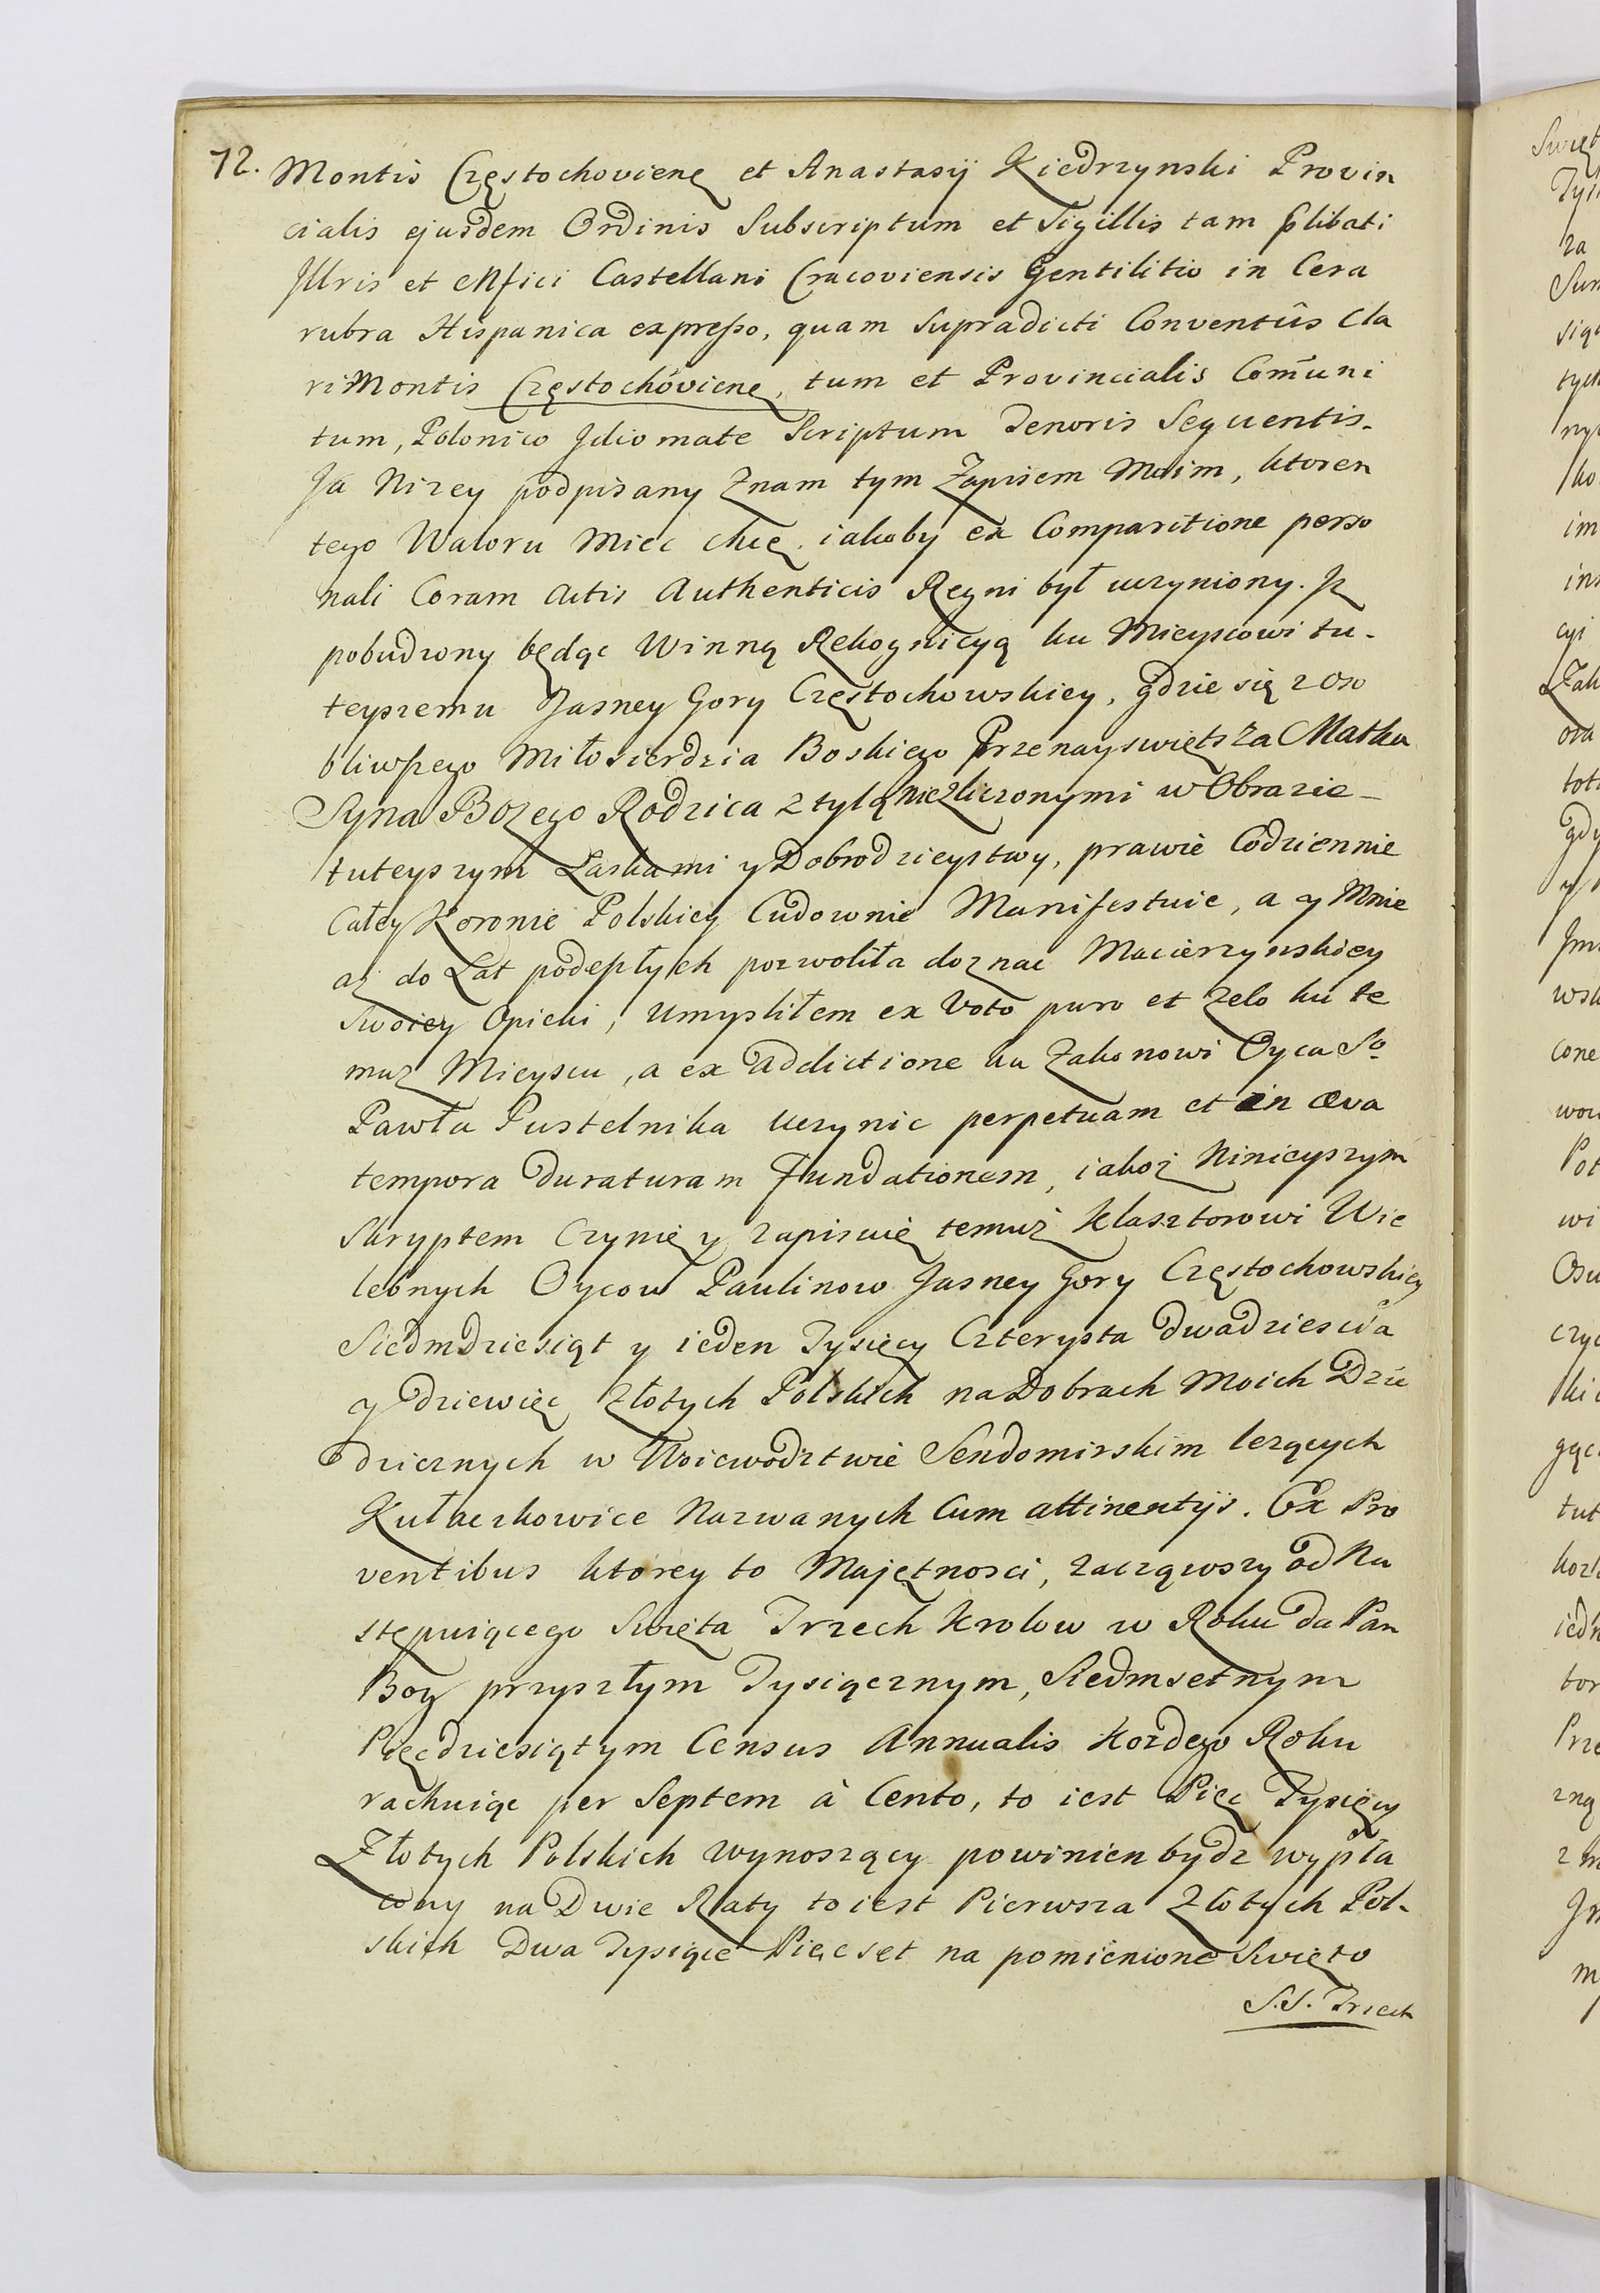 72. Montis Częstochoviene et Anastasij Kiedrzynski Provin
cialis ejusdem Ordinis Subscriptum et Sigillis tam plibati
Jllris et Mfici Castellani Cracoviensis Gentilitio in Cera
rubra Hispanica expresso, quam Supradicti Conventûs Cla
ri Montis Częstochoviene, tum et Provincialis Com̄uni
tum, Polonico Jdiomate Scriptum Tenoris Sequentis.
Ja Nizey podpisany Znam tym Zapisem Moim, ktoren
tego Waloru Miec chcę, iakoby ex Comparitione perso
nali Coram Actis Authenticis Regni był uczyniony. Jz
pobudzony będąc Winną Rekognicyą ku Mieyscowi tu-
teyszemu Jasney Gory Częstochowskiey, gdzie się z oso
bliwszego Miłosierdzia Boskiego Przenayswiętsza Matka
Syna Bozego Rodzica z tylą niezliczonymi w Obrazie
tuteyszym Łaskami y Dobrodzieystwy, prawie Codziennie
Całey Koronie Polskiey Cudownie Manifestuie, a y Mnie
az do Lat podeszłych pozwoliła doznac Macierzynskiey
Swoiey Opieki, umysliłem ex Voto puro et zelo ku te
muz Mieyscu, a ex addictione ku Zakonowi Oyca So
Pawła Pustelnika uczynic perpetuam et in æva
tempora duraturam Fundationem, iakoż Ninieyszym
Skryptem Czynię y zapisuię temuż Klasztorowi Wie
lebnych Oycow Paulinow Jasney Gory Częstochowskiey
Siedmdziesiąt y ieden Tysięcy Czterysta dwadziescia
y dziewięc Złotych Polskich na Dobrach Moich Dzie
dzicznych w Woiewodztwie Sendomirskim lezących
Kułaczkowice Nazwanych Cum attinentijs. Ex Pro
ventibus ktorey to Majętnosci, zacząwszy od Na
stępuiącego Swięta Trzech Krolow w Roku da Pan
Bog przyszłym Tysiącznym, Siedmsetnym
Pięcdziesiątym Census Annualis Kozdego Roku
rachuiąc per Septem à Cento, to iest Pięc Tysięcy
Złotych Polskich wynoszący powinien bydz wypła
cony na Dwie Raty to iest Pierwsza Złotych Pol-
skich Dwa Tysiące Pięcset na pomienione Swięto
S.S. Trzech